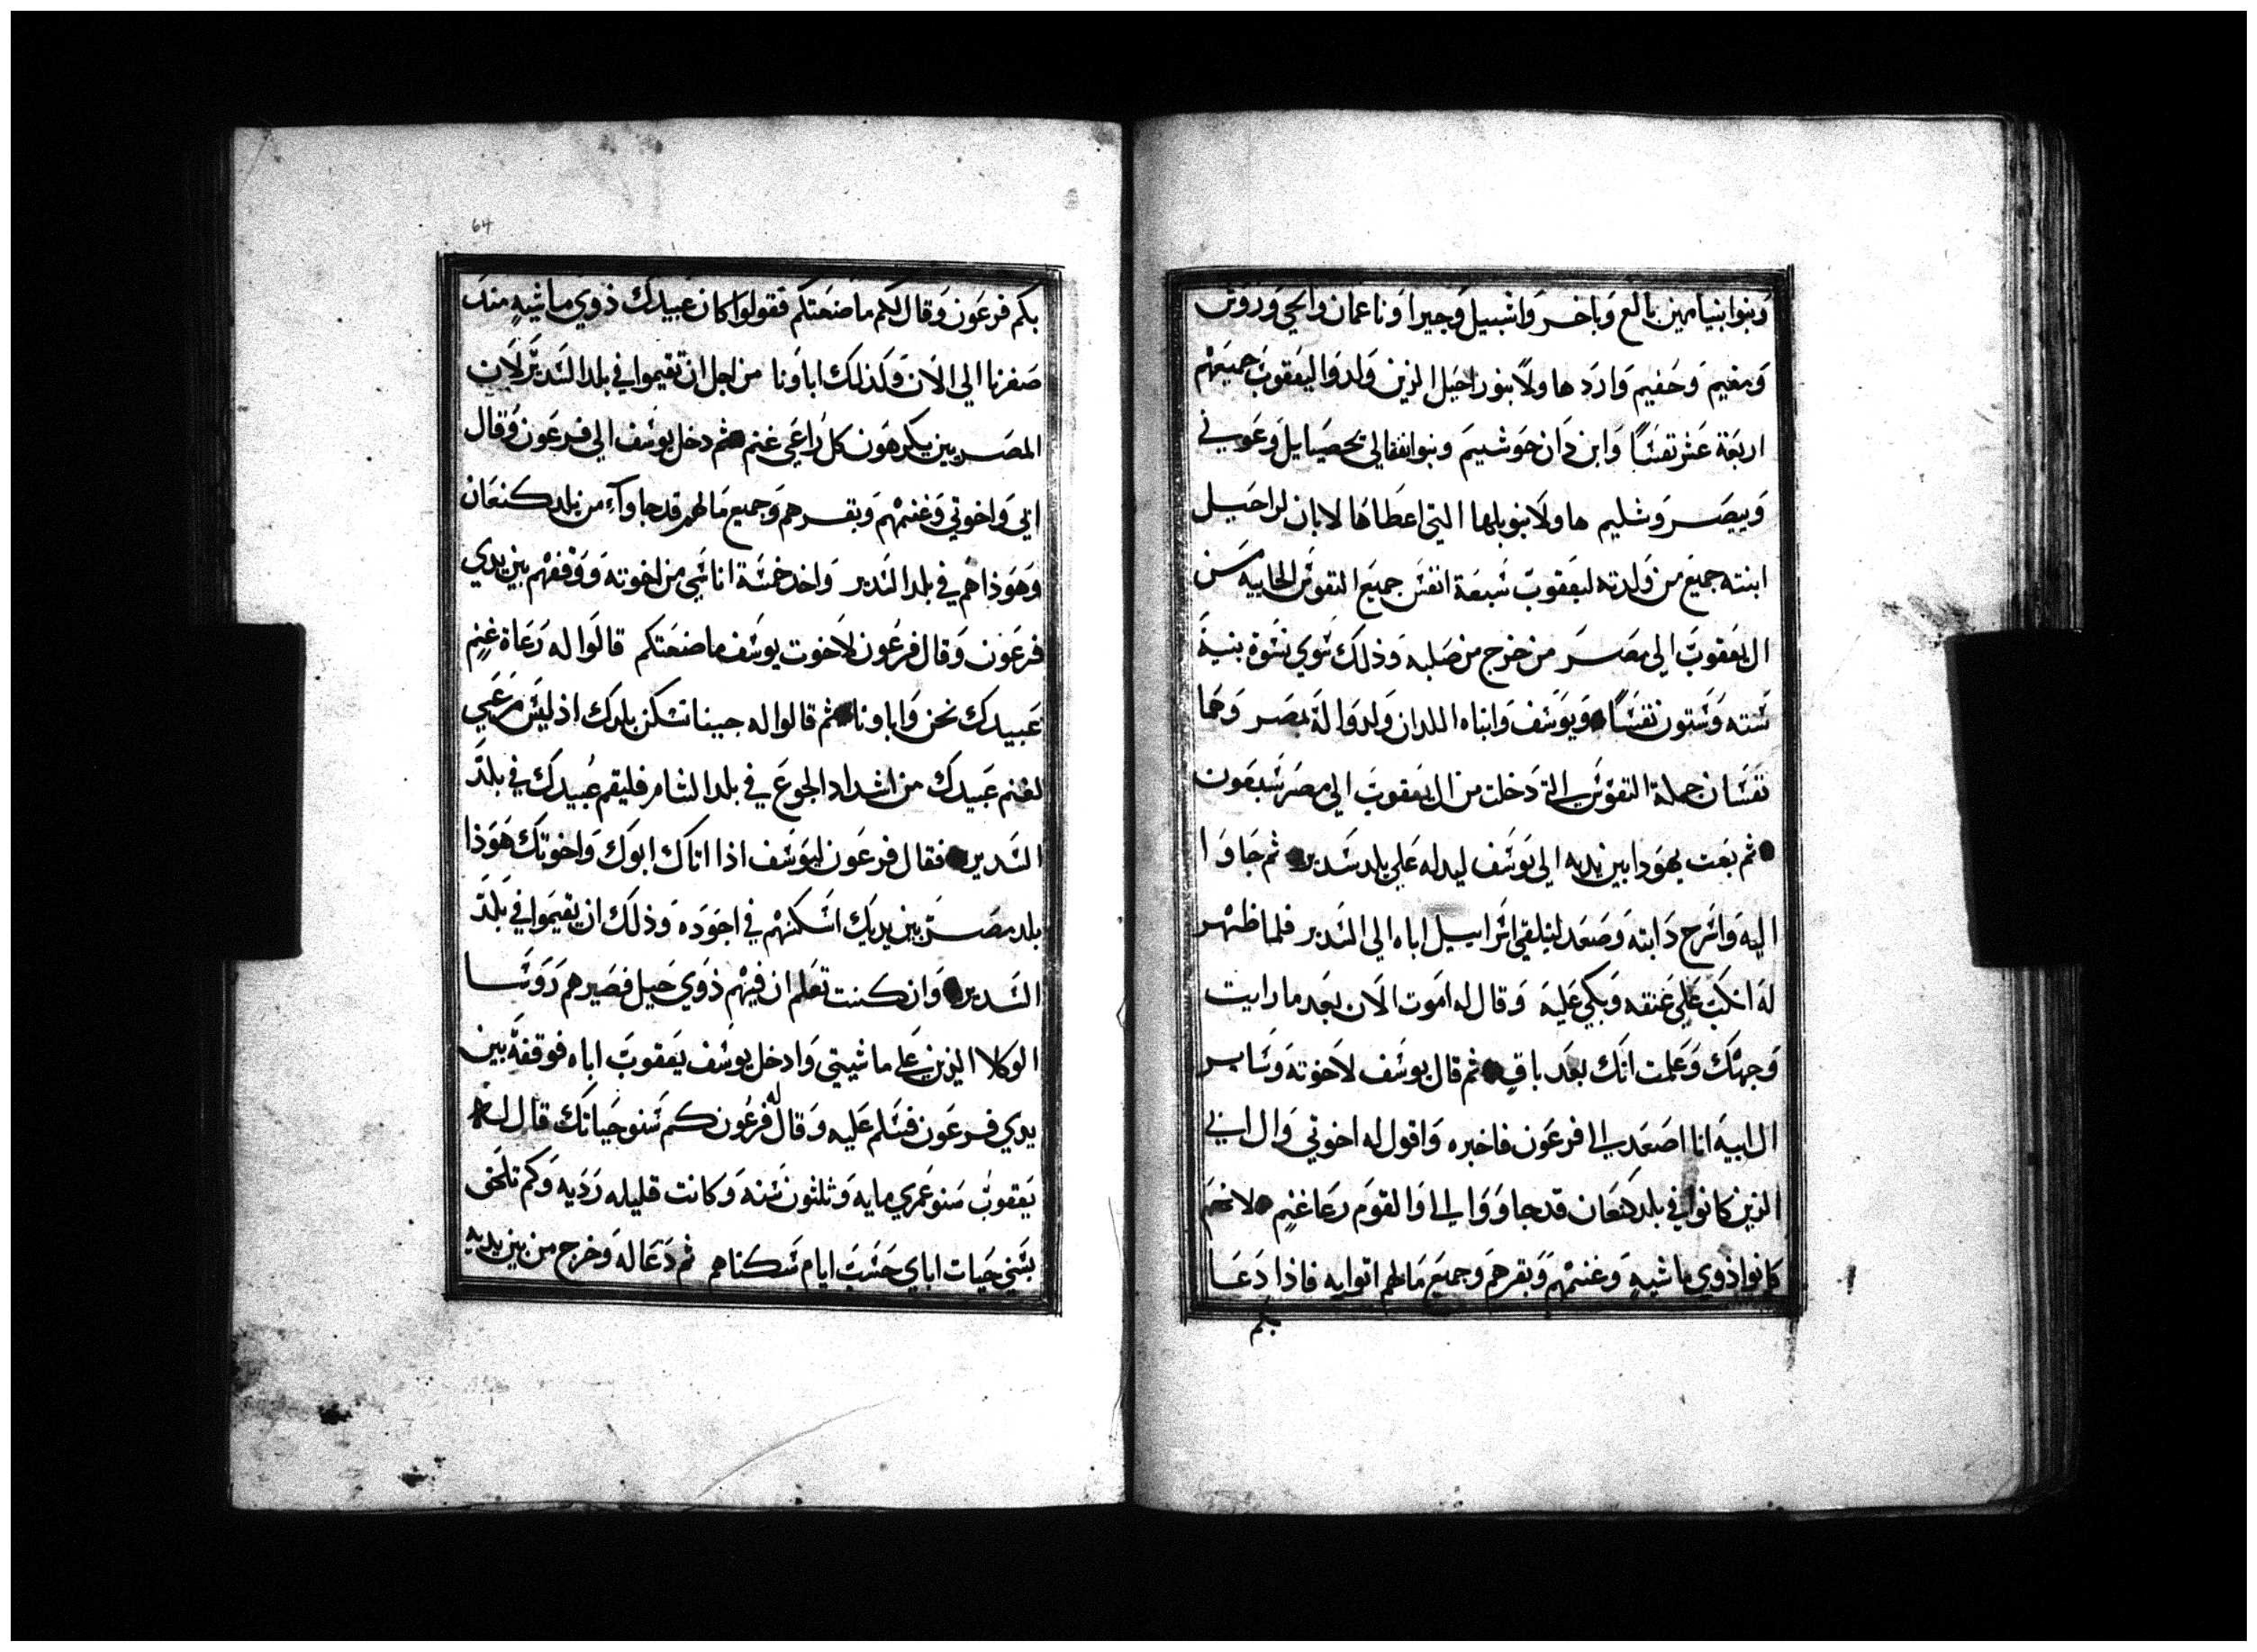 وبنوا بنيامين بالع وباخر واشبيل وجيرا وناعمان وايحي وروش
ومفيم وحفيم وارد هاولا بنو راحيل الذين ولدوا ليعقوب جميعهم
اربعة عشر نفسًا وابن دان حوشيم وبنوا نفثالي يحصيايل وعوني
وييصر وشليم هاولا بنو بلها التي اعطاها لابان لراحيل
ابنته جميع من ولدته ليعقوب سبعة انفس جميع النفوس الجاييه من
ال يعقوب الي مصر من خرج من صلبه وذلك سوي نسوة بنية
سته وستون نفسًا ويوسف وابناه اللدان ولدوا له بمصر وهما
نفسان جملة النفوس التي دخلت من ال يعقوب الي مصر سبعون
ثم بعت يهودا بين يديه الي يوسف ليدله علي بلد سدير ثم جاوا
اليه واسرج دابته وصعد ليتلقي اسراييل اباه الي السدير فلما ظهر
له انكب علي عنقه وبكي عليه وقال له اموت الان بعد ما رايت
وجهك وعلمت انك بعد باقٍ ثم قال يوسف لاخوته وساير
ال ابيه انا اصعد الي فرعون فاخبره واقول له اخوتي وال ابي
الذين كانوا في بلد كنعان قد جاووا الي والقوم رعا غنمٍ لانهم
كانوا ذوي ماشيهٍ وغنمهم وبقرهم وجميع مالهم اتوا به فاذا دعا
بكم
64
بكم فرعون وقال لكم ما صنعتكم فقولوا كان عبيدك ذوي ماشيهٍ مند
صغرنا الي الان وكذلك اباونا من اجل ان تقيموا في بلد السدير لان
المصريين يكرهون كل راعي غنم ثم دخل يوسف الي فرعون وقال
ابي واخوتي وغنمهم وبقرهم وجميع مالهم قد جاوآء من بلد كنعان
وهوذا هم في بلد السدير واخد خمسة اناسي من اخوته ووقفهم بين يدي
فرعون وقال فرعون لاخوت يوسف ما صنعتكم قالوا له رعاة غنمٍ
عبيدك نحن واباونا ثم قالوا له جينا نسكن بلدك اذ ليس مرعي
لغنم عبيدك من اشداد الجوع في بلد الشام فليقم عبيدك في بلد
السدير فقال فرعون ليوسف اذا اتاك ابوك واخوتك هوذا
بلد مصر بين يديك اسكنهم في اجوده وذلك ان يقيموا في بلد
السدير وان كنت تعلم ان فيهم ذوي حيل فصيرهم روسا
الوكلا الذين علي ماشيتي وادخل يوسف يعقوب اباه فوقفه بين
يدي فرعون فسلم عليه وقال له فرعون كم سنو حياتك قال له
يعقوب سنو عمري مايه وثلثون سنه وكانت قليله رديه وكم تلحق
بسني حيات اباي حسب ايام سكناهم ثم دعا له وخرج من بين يديه